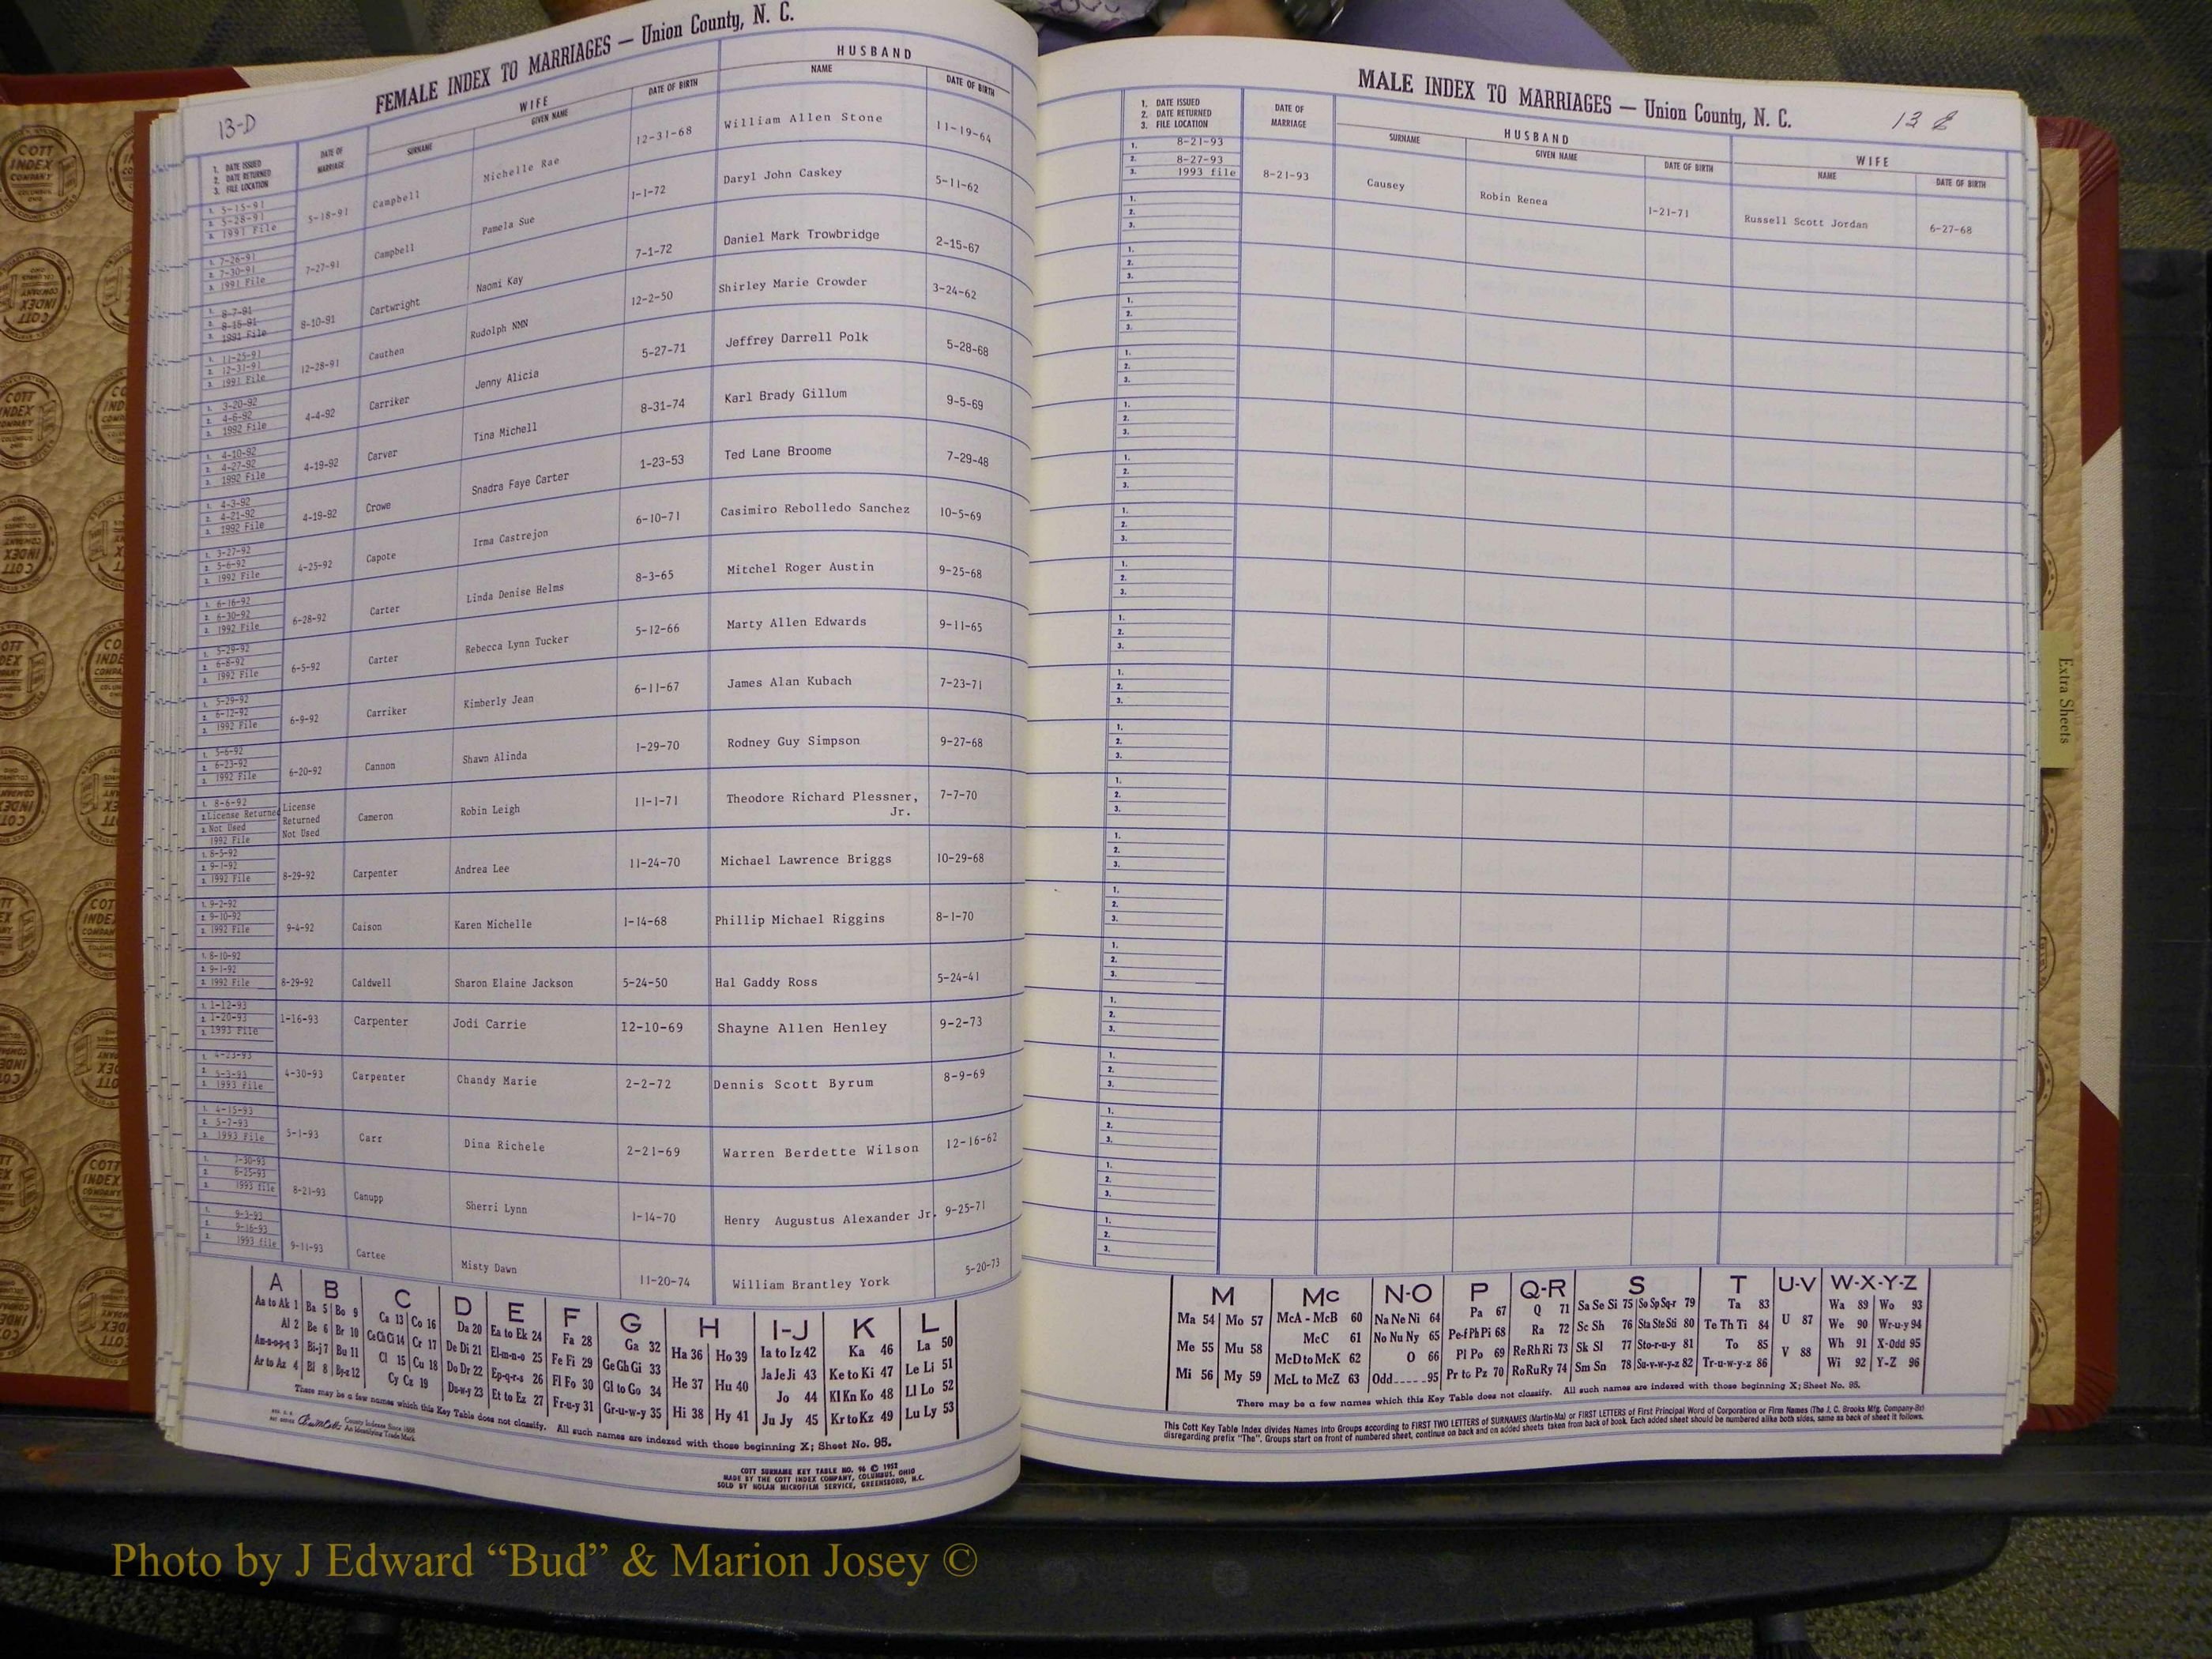 FEMALE INDEX TO MARRIAGES — Union County, N. C.
13-D
1. DATE ISSUED 2. DATE RETURNED 3. FILE LOCATION DATE OF MARRIAGE WIFE SURNAME GIVEN NAME DATE OF BIRTH HUSBAND NAME DATE OF BIRTH
1. 5-15-91 2. 5-28-91 3. 1991 File 5-18-91 Campbell Michelle Rae 12-31-68 William Allen Stone 11-19-64
1. 7-26-91 2. 7-30-91 3. 1991 File 7-27-91 Campbell Pamela Sue 1-1-72 Daryl John Caskey 5-11-62
1. 8-7-91 2. 8-15-91 3. 1991 File 8-10-91 Cartwright Naomi Kay 7-1-72 Daniel Mark Trowbridge 2-15-67
1. 11-25-91 2. 12-31-91 3. 1991 File 12-28-91 Cauthen Rudolph NMN 12-2-50 Shirley Marie Crowder 3-24-62
1. 3-20-92 2. 4-6-92 3. 1992 File 4-4-92 Carriker Jenny Alicia 5-27-71 Jeffrey Darrell Polk 5-28-68
1. 4-10-92 2. 4-27-92 3. 1992 File 4-19-92 Carver Tina Michell 8-31-74 Karl Brady Gillum 9-5-69
1. 4-3-92 2. 4-21-92 3. 1992 File 4-19-92 Crowe Snadra Faye Carter 1-23-53 Ted Lane Broome 7-29-48
1. 3-27-92 2. 5-6-92 3. 1992 File 4-25-92 Capote Irma Castrejon 6-10-71 Casimiro Rebolledo Sanchez 10-5-69
1. 6-16-92 2. 6-30-92 3. 1992 File 6-28-92 Carter Linda Denise Helms 8-3-65 Mitchel Roger Austin 9-25-68
1. 5-29-92 2. 6-8-92 3. 1992 File 6-5-92 Carter Rebecca Lynn Tucker 5-12-66 Marty Allen Edwards 9-11-65
1. 5-29-92 2. 6-12-92 3. 1992 File 6-9-92 Carriker Kimberly Jean 6-11-67 James Alan Kubach 7-23-71
1. 5-6-92 2. 6-23-92 3. 1992 File 6-20-92 Cannon Shawn Alinda 1-29-70 Rodney Guy Simpson 9-27-68
1. 8-6-92 2. License Returned 3. Not Used 1992 File License Returned Not Used Cameron Robin Leigh 11-1-71 Theodore Richard Plessner, Jr. 7-7-70
1. 8-5-92 2. 9-1-92 3. 1992 File 8-29-92 Carpenter Andrea Lee 11-24-70 Michael Lawrence Briggs 10-29-68
1. 9-2-92 2. 9-10-92 3. 1992 File 9-4-92 Caison Karen Michelle 1-14-68 Phillip Michael Riggins 8-1-70
1. 8-10-92 2. 9-1-92 3. 1992 File 8-29-92 Caldwell Sharon Elaine Jackson 5-24-50 Hal Gaddy Ross 5-24-41
1. 1-12-93 2. 1-20-93 3. 1993 File 1-16-93 Carpenter Jodi Carrie 12-10-69 Shayne Allen Henley 9-2-73
1. 4-23-93 2. 5-3-93 3. 1993 File 4-30-93 Carpenter Chandy Marie 2-2-72 Dennis Scott Byrum 8-9-69
1. 4-15-93 2. 5-7-93 3. 1993 File 5-1-93 Carr Dina Richele 2-21-69 Warren Berdette Wilson 12-16-62
1. 7-30-93 2. 8-25-93 3. 1993 file 8-21-93 Canupp Sherri Lynn 1-14-70 Henry Augustus Alexander Jr. 9-25-71
1. 9-3-93 2. 9-16-93 3. 1993 file 9-11-93 Cartee Misty Dawn 11-20-74 William Brantley York 5-20-73
A B C D E F G H I-J K L
Aa to Ak 1 Ba 5 Bo 9 Ca 13 Co 16 Da 20 Ea to Ek 24 Fa 28 Ga 32 Ha 36 Ho 39 Ia to Iz 42 Ka 46 La 50
Al 2 Be 6 Br 10 Ce Ch Ci 14 Cr 17 De Di 21 El-m-n-o 25 Fe Fi 29 Ge Gh Gi 33 He 37 Hu 40 Ja Je Ji 43 Ke to Ki 47 Le Li 51
Am-n-o-p-q 3 Bi-j 7 Bu 11 Cl 15 Cu 18 Do Dr 22 Ep-q-r-s 26 Fl Fo 30 Gl to Go 34 Hi 38 Hy 41 Jo 44 Kl Kn Ko 48 Ll Lo 52
Ar to Az 4 Bl 8 By-z 12 Cy Cz 19 Du-w-y 23 Et to Ez 27 Fr-u-y 31 Gr-u-w-y 35 Ju Jy 45 Kr to Kz 49 Lu Ly 53
There may be a few names which this Key Table does not classify. All such names are indexed with those beginning X; Sheet No. 95.
County Indexes Since 1888
An Identifying Trade Mark
COTT SURNAME KEY TABLE NO. 96 © 1952
MADE BY THE COTT INDEX COMPANY, COLUMBUS, OHIO
SOLD BY NOLAN MICROFILM SERVICE, GREENSBORO, N.C.
MALE INDEX TO MARRIAGES — Union County, N. C.
13
1. DATE ISSUED 2. DATE RETURNED 3. FILE LOCATION DATE OF MARRIAGE HUSBAND SURNAME GIVEN NAME DATE OF BIRTH WIFE NAME DATE OF BIRTH
1. 8-21-93 2. 8-27-93 3. 1993 file 8-21-93 Causey Robin Renea 1-21-71 Russell Scott Jordan 6-27-68
Extra Sheets
M Mc N-O P Q-R S T U-V W-X-Y-Z
Ma 54 Mo 57 McA - McB 60 Na Ne Ni 64 Pa 67 Q 71 Sa Se Si 75 So Sp Sq-r 79 Ta 83 U 87 Wa 89 Wo 93
Me 55 Mu 58 McC 61 No Nu Ny 65 Pe-f Ph Pi 68 Ra 72 Sc Sh 76 Sta Ste Sti 80 Te Th Ti 84 V 88 We 90 Wr-u-y 94
Mi 56 My 59 McD to McK 62 O 66 Pl Po 69 Re Rh Ri 73 Sk Sl 77 Sto-r-u-y 81 To 85 Wh 91 X-Odd 95
McL to McZ 63 Odd 95 Pr to Pz 70 Ro Ru Ry 74 Sm Sn 78 Su-v-w-y-z 82 Tr-u-w-y-z 86 Wi 92 Y-Z 96
There may be a few names which this Key Table does not classify. All such names are indexed with those beginning X; Sheet No. 95.
This Cott Key Table Index divides Names into Groups according to FIRST TWO LETTERS of SURNAMES (Martin-Ma) or FIRST LETTERS of First Principal Word of Corporation or Firm Names (The J. C. Brooks Mfg. Company-Br)
disregarding prefix "The". Groups start on front of numbered sheet, continue on back and on added sheets taken from back of book. Each added sheet should be numbered alike both sides, same as back of sheet it follows.
COTT INDEX COMPANY
Photo by J Edward “Bud” & Marion Josey ©